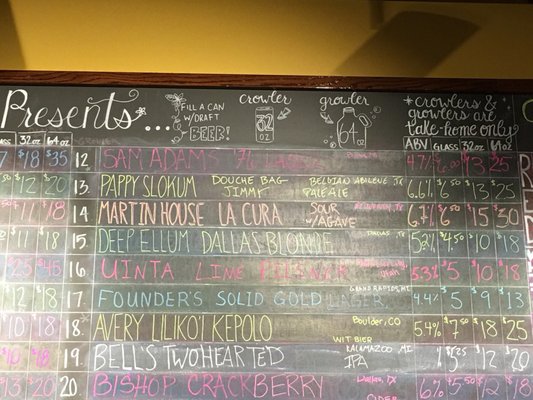 Presents...
FILL A CAN
W/ DRAFT
BEER!
crowler
32
oz
growler
64
oz
crowlers &
growlers are
take-home only
32oz 64oz
ABV GLASS 32oz 64oz
7 $18 $35 12. SAM ADAMS 76 4.7% $13 $25
$12 $20 13. PAPPY SLOKUM DOUCHE BAG JIMMY BELGIAN PALE ALE ABILENE, TX 6.6% $6.50 $13 $25
$11 $18 14. MARTIN HOUSE LA CURA SOUR W/AGAVE 6.7% $6.50 $15 $30
$11 $18 15. DEEP ELLUM DALLAS BLONDE DALLAS, TX 5.2% $4.50 $10 $18
$25 16. UINTA LIME PILSNER Utah 5.3% $5 $10 $18
$12 $18 17. FOUNDER'S SOLID GOLD LAGER GRAND RAPIDS, MI 4.4% $5 $9 $13
$10 $18 18. AVERY LILIKO'I KEPOLO Boulder, CO WIT BIER 5.4% $7.50 $18 $25
$10 $18 19. BELL'S TWO HEARTED KALAMAZOO MI IPA $5.25 $12 $20
$13 $20 20. BISHOP CRACKBERRY Dallas, TX CIDER 6% $5.50 $12 $18